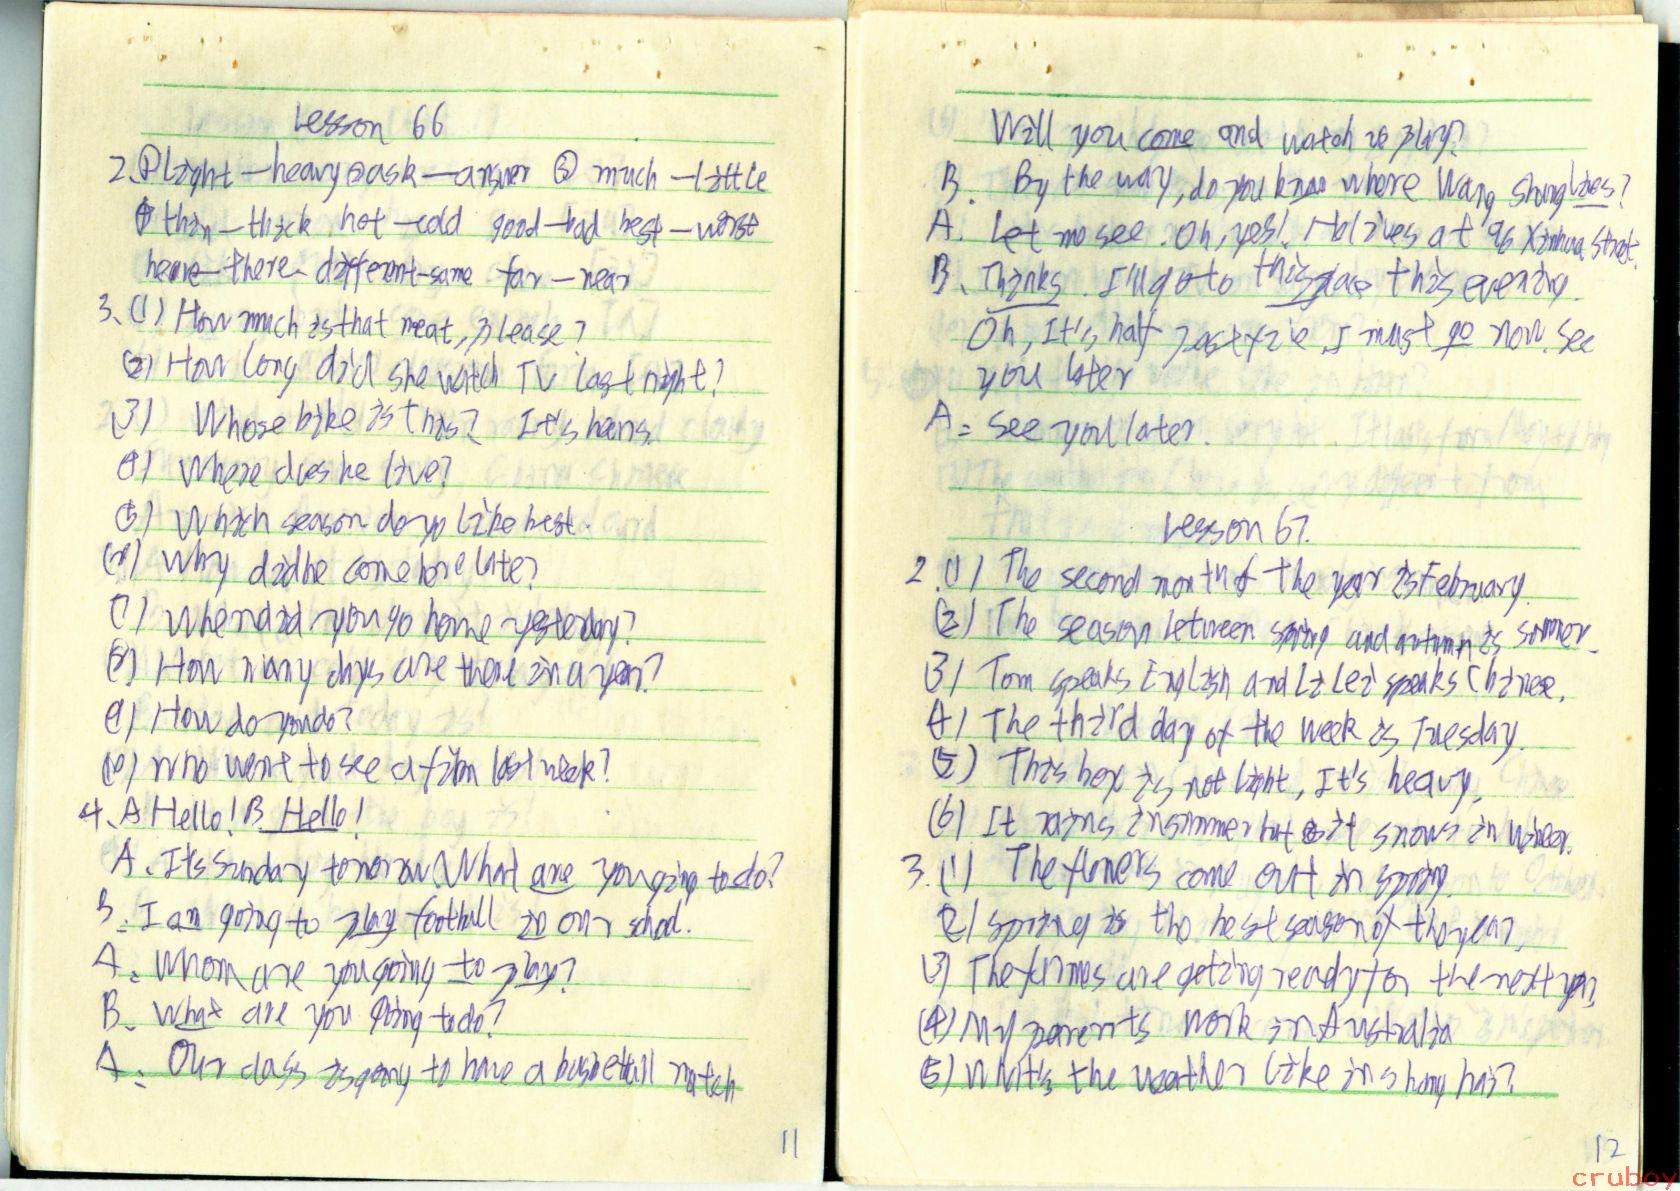 Lesson 66
2. ① light—heavy ② ask—answer ③ much—little
④ thin—thick hot—cold good—bad best—worst
there different—same far—near
3. (1) How much is that meat, please?
(2) How long did she watch TV last night?
(3) Whose bike is this? It's hers.
(4) Where does he live?
(5) Which season do yo like best.
Why did he come home late?
(7) When did you go home yesterday?
(8) How many days are there in a year?
(9) How do you do?
(10) Who went to see a film last week?
4. A Hello! B. Hello!
A. It's Sunday tomorrow. What are you going to do?
B. I am going to play football in our school.
A. Whom are you going to play?
B. What are you going to do?
A. Our class is going to have a basketball match
11
Will you come and watch us play?
B. By the way, do you know where Wang lives?
A. Let me see. Oh, yes! He lives at 96 Xinhua Street.
B. Thinks. I'll go to this place this evening.
Oh, It's half past five. I must go now. See
you later
A. See you later.
Lesson 67.
2. (1) The second month of the year is February.
(2) The season between spring and autumn is summer.
(3) Tom speaks English and Li Lei speaks Chinese.
(4) The third day of the week is Tuesday.
(5) This box is not light, It's heavy.
(6) It rains in summer but it snows in winter.
3. (1) The flowers come out in spring.
(2) Spring is the best season of the year.
(3) The are getting ready for the next year.
(4) My parents work in Australia
(5) the weather like in Shanghai?
12
cruboy